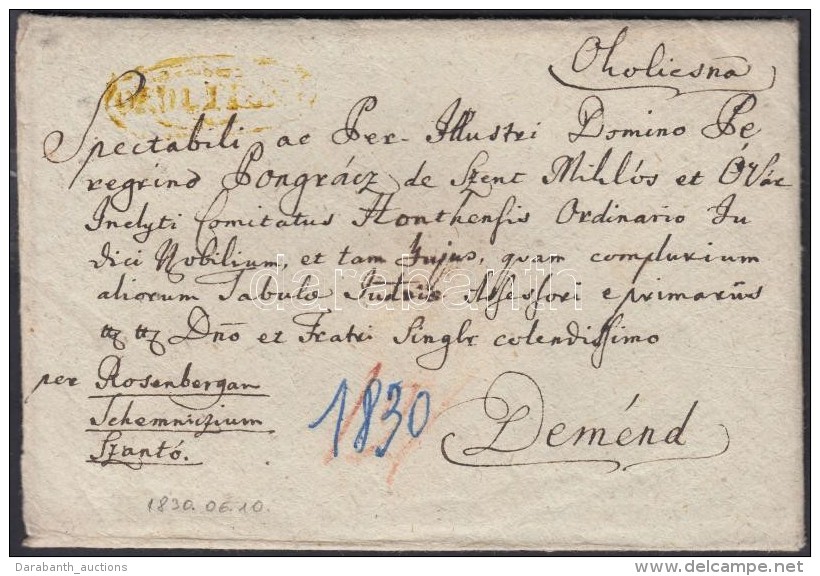 Okolicsna
Spectabili ac Per-Illustri Domino Pe
regrino Pongrácz de Szent Miklós et Óvár
Inclyti Comitatus Honthensis Ordinario Ju
dici Nobilium, et tam hujus, quam complurium
aliorum Tabulae Judriae Assessori e primariis
ttz ttz Dño et Fratri Singlr colendissimo
per Rosenbergam
Schemniczium
Szantó.
1830
Deménd
1830.06.10.
darabanth
Darabanth_auctions
delcampe.net